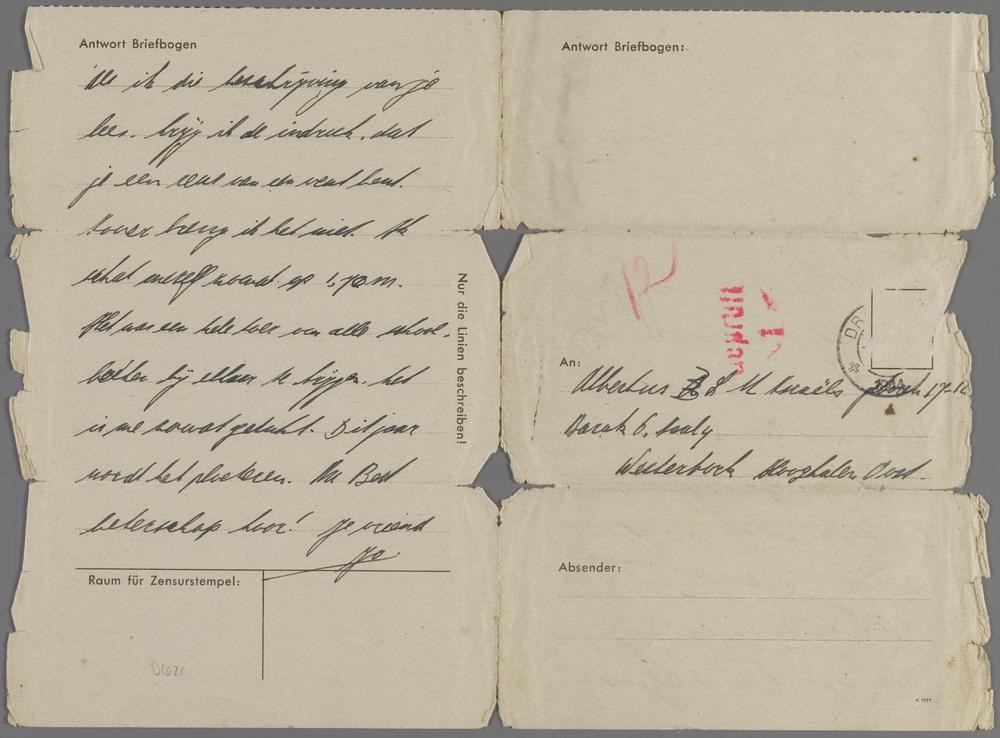 Antwort Briefbogen
Als ik die beschrijving van je
lees, krijg ik de indruk, dat
je een reus van een vent bent.
Zover breng ik het niet. Ik
schat mezelf zowat op 1,70 m.
Het was een hele toer om alle school-
bij elkaar te krijgen. Het
is me zowat gelukt. Dit jaar
wordt het ploeteren. Nu Bert
beterschap hoor! Je vriend
Jo
Nur die Linien beschreiben!
Raum für Zensurstempel:
01021
Antwort Briefbogen:
An:
Albertus
Barak 6, Zaal 4
Westerbork Hooghalen Oost.
Absender: